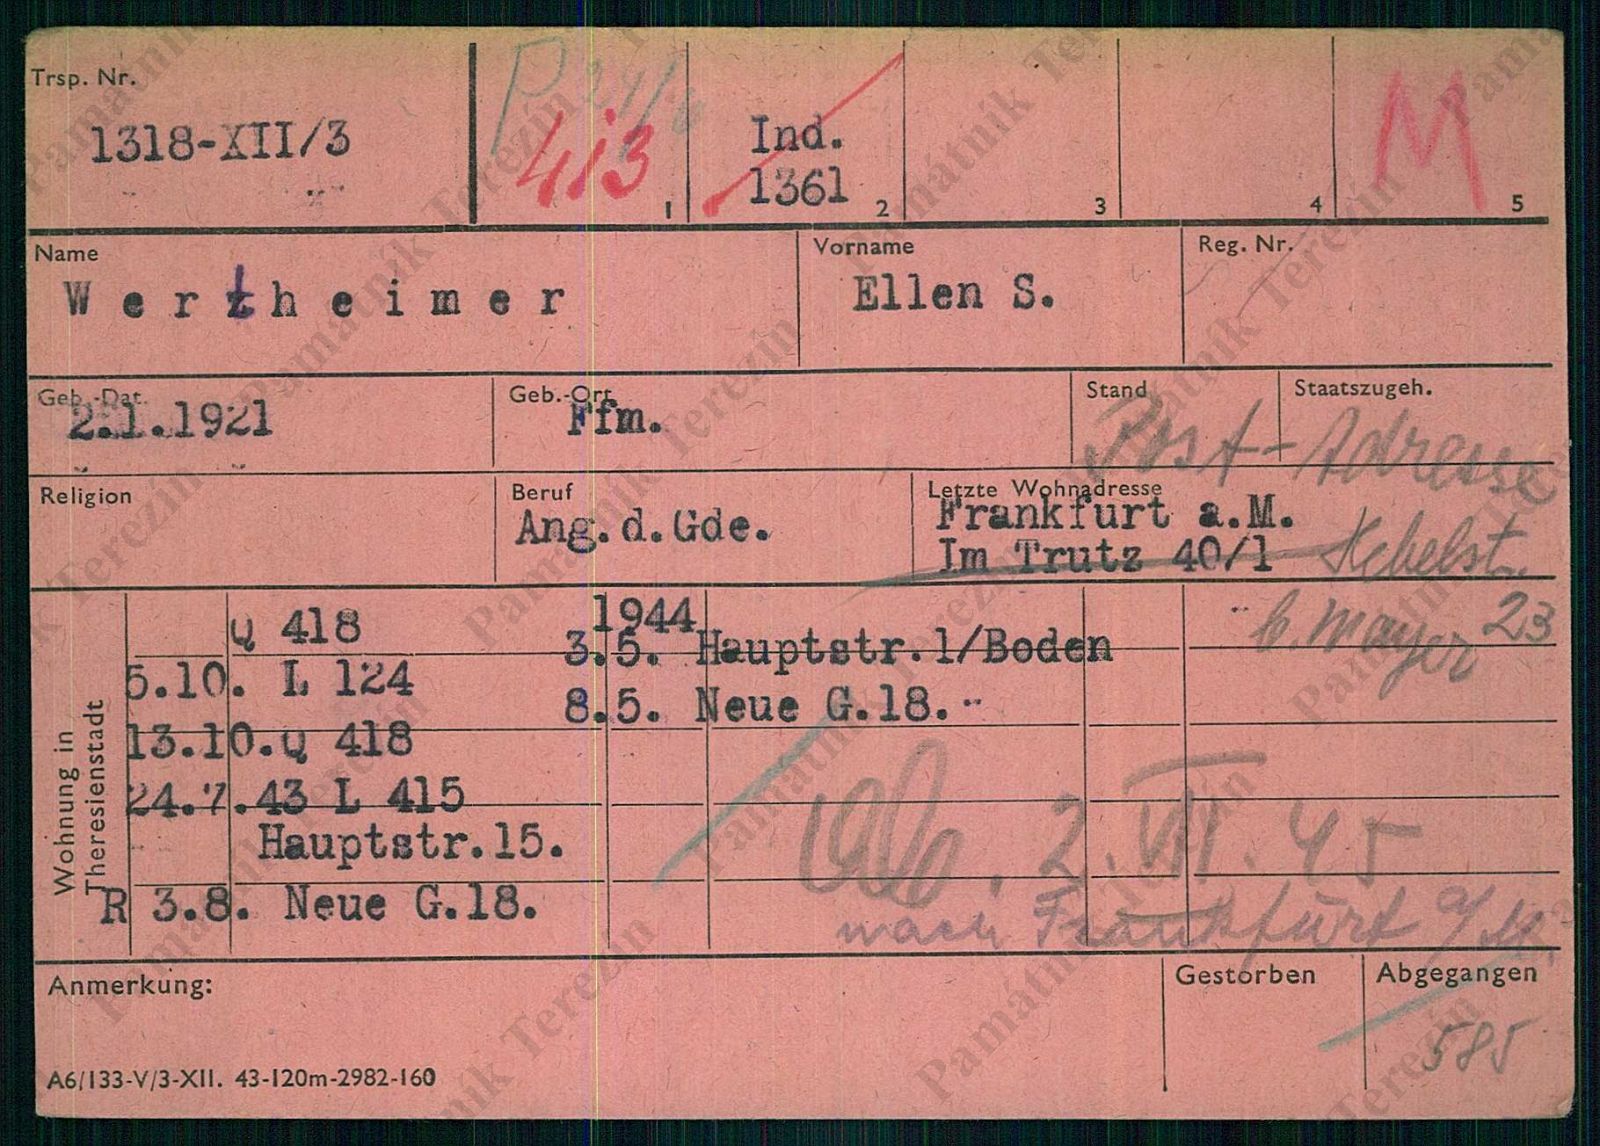 Trsp. Nr.
1318-XII/3
P 24/6
413
1
Ind.
1361
2
3
4
M
5
Name
Wertheimer
Vorname
Ellen S.
Reg. Nr.
Geb.-Dat.
2.1.1921
Geb.-Ort
Ffm.
Stand
Staatszugeh.
Post-Adresse
Religion
Beruf
Ang.d.Gde.
Letzte Wohnadresse
Frankfurt a.M.
Im Trutz 40/1
b. Mayer 23
Wohnung in
Theresienstadt
Q 418
5.10. L 124
13.10. Q 418
24.7.43 L 415
Hauptstr.15.
R 3.8. Neue G.18.
1944
3.5. Hauptstr.1/Boden
8.5. Neue G.18.
2.VII.45
nach Frankfurt a/M.
Anmerkung:
Gestorben
Abgegangen
585
A6/133-V/3-XII. 43-120m-2982-160
Památník Terezín